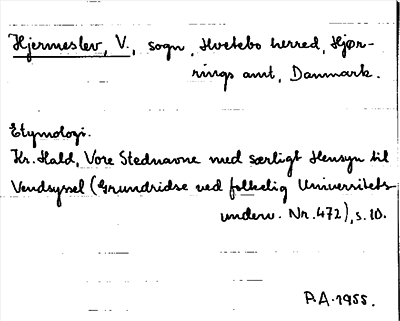 Hjermeslev, V., sogn, Hvetbo herred, Hjør-
rings amt, Danmark.
Etymologi.
Kr. Hald, Vore Stednavne med særligt Hensyn til
Vendsyssel (Grundridse ved folkelig Universitets-
underv. Nr. 472), s. 10.
P.A. 1955.